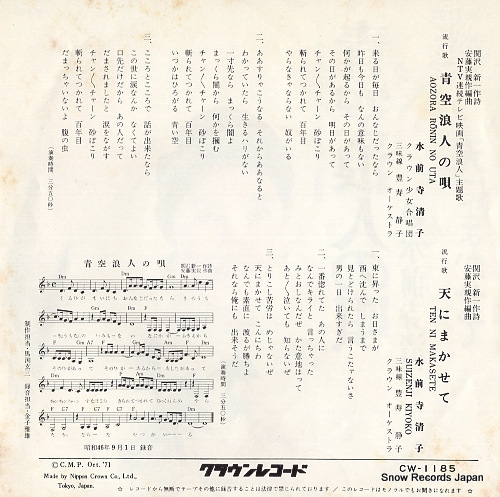 関沢新一作詩
安藤実親作編曲
NTV連続テレビ映画「青空浪人」主題歌
流行歌
青空浪人の唄
AOZORA RŌNIN NO UTA
水前寺清子
クラウン少女合唱団
三味線 豊寿 静子
クラウン オーケストラ
一、来る日が毎日 おんなじだったなら
昨日も今日も なんの意味もない
何かが起るから その日があって
その日があるから 明日があって
チャン/\チャーン 砂ぼこり
斬られてつかれて 百年目
やらなきゃならない 奴がいる
二、ああすりゃこうなる それからああなると
わかっていたら 生きるハリがない
一寸先なら まっくら闇よ
まっくら闇から 何かを掴む
チャン/\チャーン 砂ぼこり
斬られてつかれて 百年目
いつかはひろがる 青い空
三、こころとこころで 話が出来たなら
この世に涙なんか なくてよい
口先だけだから あの人だって
だまされましたと 涙をながす
チャン/\チャーン 砂ぼこり
斬られてつかれて 百年目
だまっちゃいないよ 腹の虫
(演奏時間 三分五〇秒)
関沢新一作詩
安藤実親作編曲
流行歌
天にまかせて
TEN NI MAKASETE
水前寺清子
SUIZENJI KIYOKO
三味線 豊寿 静子
クラウン オーケストラ
一、東に昇った お日さまが
西へ沈んでしまうまで
見とどけられたら 言うこたないさ
男の一日 出来すぎだ
二、一番惚れてた あの人に
なんでキライと 言っちゃった
みとおし知らねど かた意地はって
あと/\泣いても 知らないぜ
三、とりこし苦労は めじゃないぜ
天にまかせて こんにちわ
なんでも素直に 渡るが勝ちよ
それなら俺にも 出来そうだ
(演奏時間 三分五〇秒)
青空浪人の唄
関沢新一作詩
安藤実親作曲
制作担当・馬渕玄三
録音担当・金子雅雄
昭和46年9月1日 録音
Ⓟ C.M.P. Oct. '71
Made by Nippon Crown Co., Ltd.,
Tokyo, Japan.
クラウンレコード
CW-1185
Snow Records Japan
☆ レコードから無断でテープその他に録音することは法律で禁じられております / このレコードはモノラルでもお聞きになれます ☆